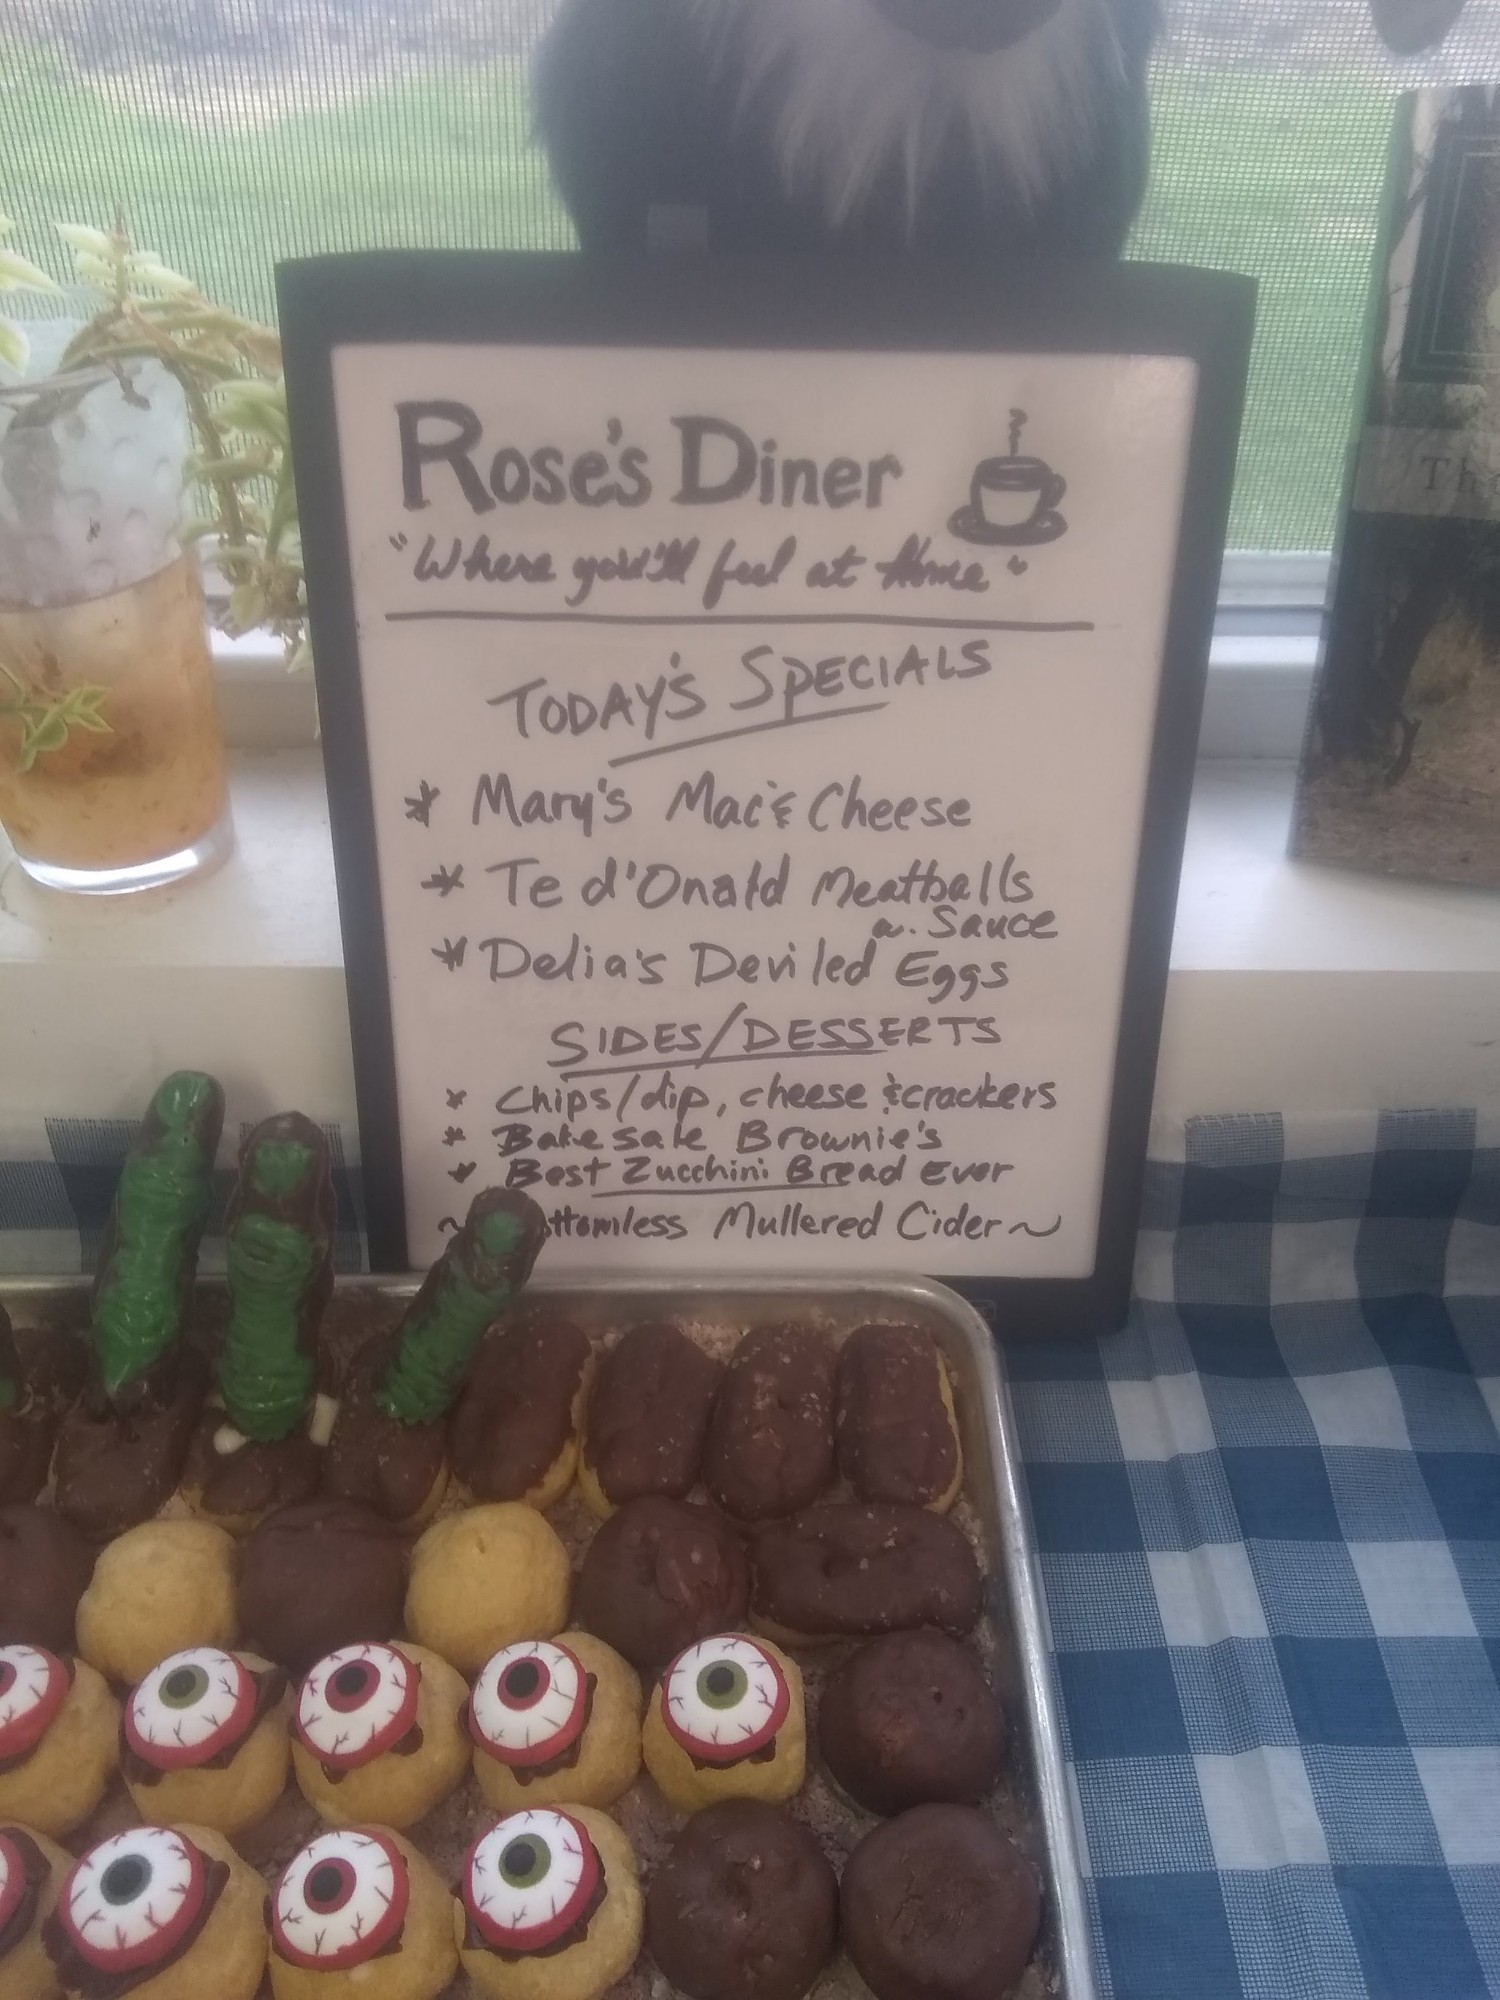 Rose's Diner
"Where you'll feel at Home"
TODAY'S SPECIALS
* Mary's Mac & Cheese
* Te d'Onald Meatballs
w. Sauce
* Delia's Deviled Eggs
SIDES/DESSERTS
* Chips/dip, cheese & crackers
* Bake sale Brownie's
* Best Zucchini Bread Ever
~ ttomless Mullered Cider ~
Th